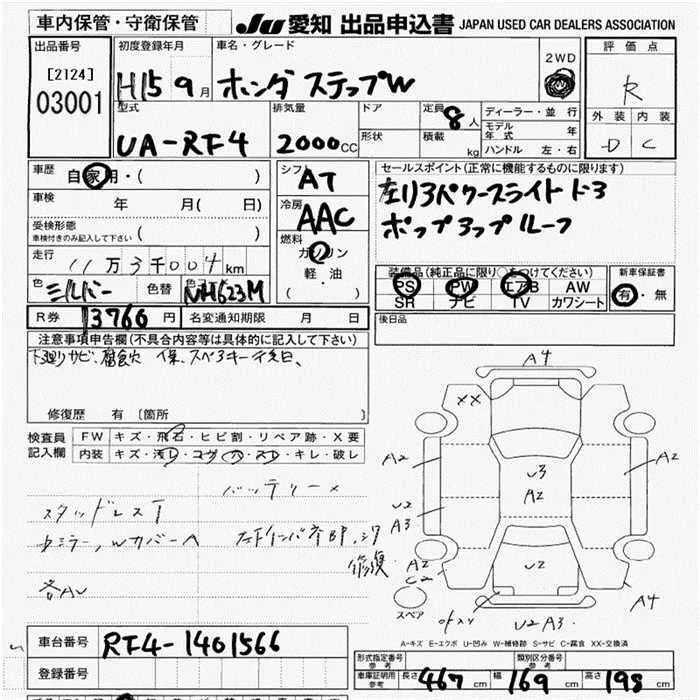 車内保管・守衛保管
JU 愛知 出品申込書 JAPAN USED CAR DEALERS ASSOCIATION
出品番号
[2124]
03001
初度登録年月
H15 9月
車名・グレード
ホンダ ステップW
2WD
評価点
R
外装 内装
D C
型式
UA-RF4
排気量
2000CC
ドア
形状
定員 8人
積載 kg
ディーラー・並行
モデル年式 年
ハンドル 左・右
車歴 自家用・( )
車検 年 月( 日)
受検形態
車検付きのみ記入して下さい ( )
走行 11万3千004km
色 シルバー 色替 色 NH623M
シフト
AT
冷房
AAC
燃料
ガソリン
軽・油
( )
セールスポイント(正常に機能するものに限ります)
左リヤパワースライドドア
ポップアップルーフ
装備品(純正品に限り○をつけてください)
PS PW エアB AW
SR ナビ TV カワシート
新車保証書
有・無
R券 13760円 名変通知期限 月 日
後日品
注意事項申告欄(不具合内容等は具体的に記入して下さい)
下廻りサビ、腐食
修復歴 有 [箇所
検査員
記入欄
FW キズ・飛石・ヒビ割・リペア跡・X要
内装 キズ・汚レ・コゲ・穴・スレ・キレ・破レ
バッテリー×
スタッドレスT
修復
各AU
A4
XX
A2
A2
U3
A2
U2
A3
A2
C2
U2
A4
スペア
U2 A3
A-キズ E-エクボ U-凹み W-補修跡 S-サビ C-腐食 XX-交換済
車台番号 RF4-1401566
登録番号
形式指定番号
参考
類別区分番号
参考
車庫証明用
参考
長さ 467cm 幅 169cm 高さ 198cm